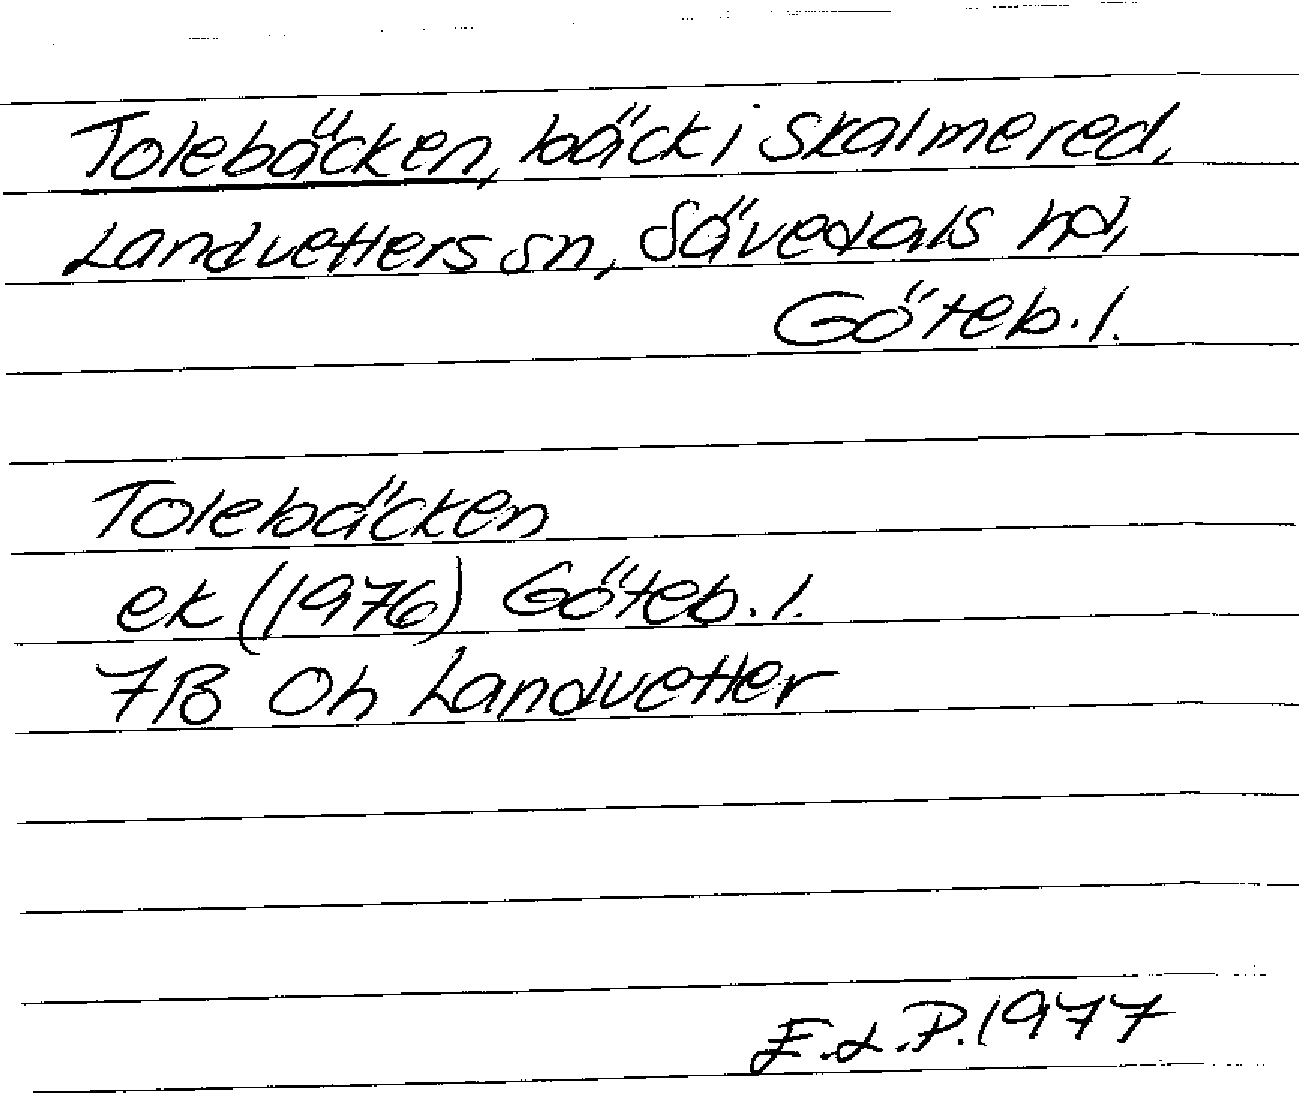 Tolebäcken, bäck i Skalmered,
Landvetters sn, Sävedals hd,
Göteb. l.
Tolebäcken
ek (1976) Göteb. l.
7B 0h Landvetter
E.L.P. 1977